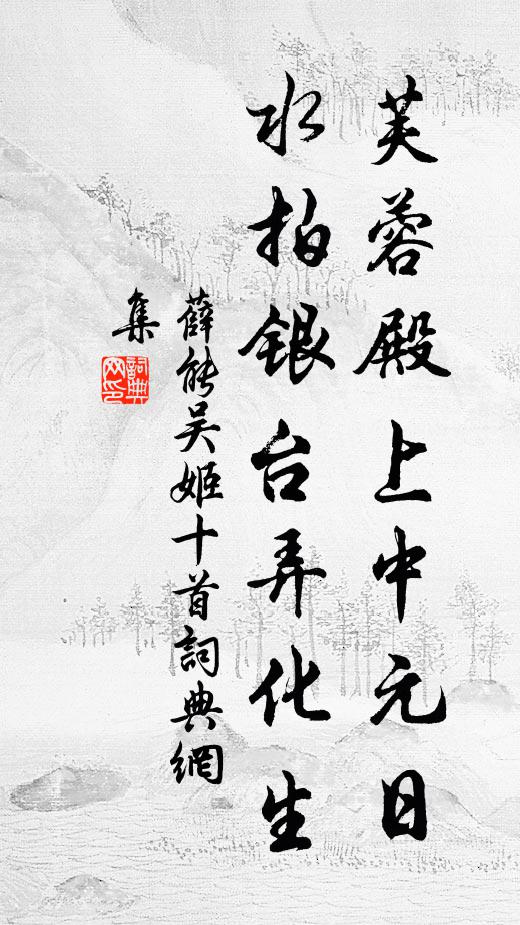 芙蓉殿上中元日
水拍银台弄化生
薛能吴姬十首詞典網
集
詞典
网印